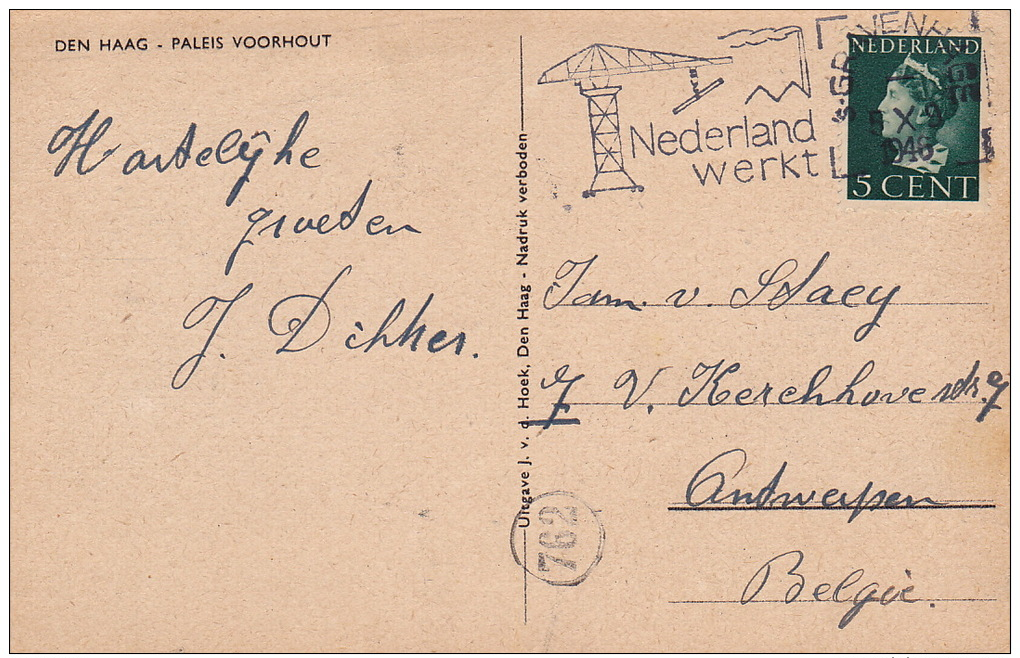 DEN HAAG - PALEIS VOORHOUT
Hartelijke
groeten
J. Dikker.
Uitgave J. v. d. Hoek, Den Haag - Nadruk verboden
Nederland
werkt
NEDERLAND
5 X
1946
5 CENT
Fam. v. Staey
7 V. Kerckhovenstr. 7
Antwerpen
België.
762